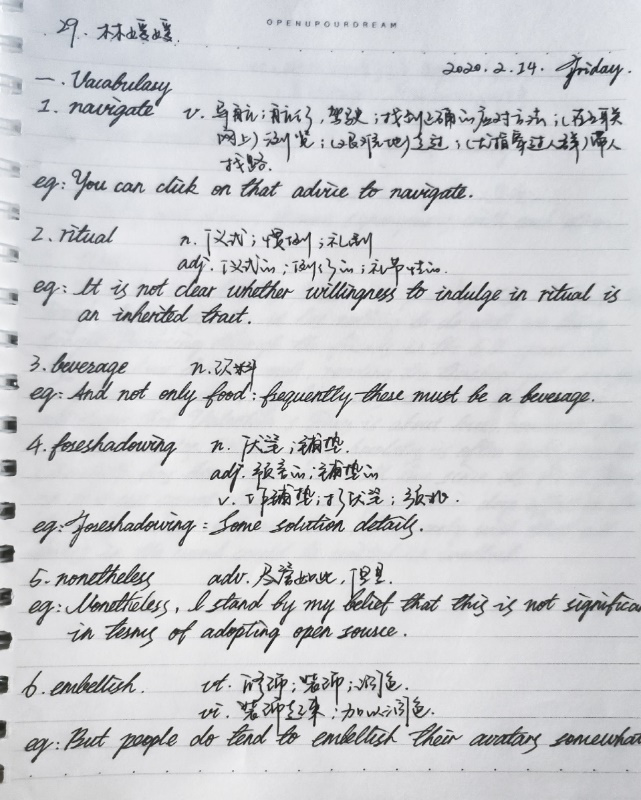 OPENUPOURDREAM
29. 林媛媛
2020.2.14. Friday.
一. Vacabulary
1. navigate v. 导航;航行,驾驶;找到正确的应对方法;(在互联
网上)浏览;(艰难地)走过;(尤指穿过人群)带人
找路.
eg: You can click on that advice to navigate.
2. ritual n. 仪式;惯例;礼制
adj. 仪式的;例行的;礼节性的.
eg: It is not clear whether willingness to indulge in ritual is
an inherited trait.
3. beverage n. 饮料
eg: And not only food: frequently there must be a beverage.
4. foreshadowing n. 伏笔;铺垫.
adj. 预言的;铺垫的
v. 作铺垫;打伏笔;预兆.
eg: Foreshadowing: Some solution details.
5. nonetheless adv. 尽管如此,但是.
eg: Nonetheless, I stand by my belief that this is not significa
in terms of adopting open source.
6. embellish. vt. 修饰;装饰;润色.
vi. 装饰起来;加以润色.
eg: But people do tend to embellish their avatars somewhat